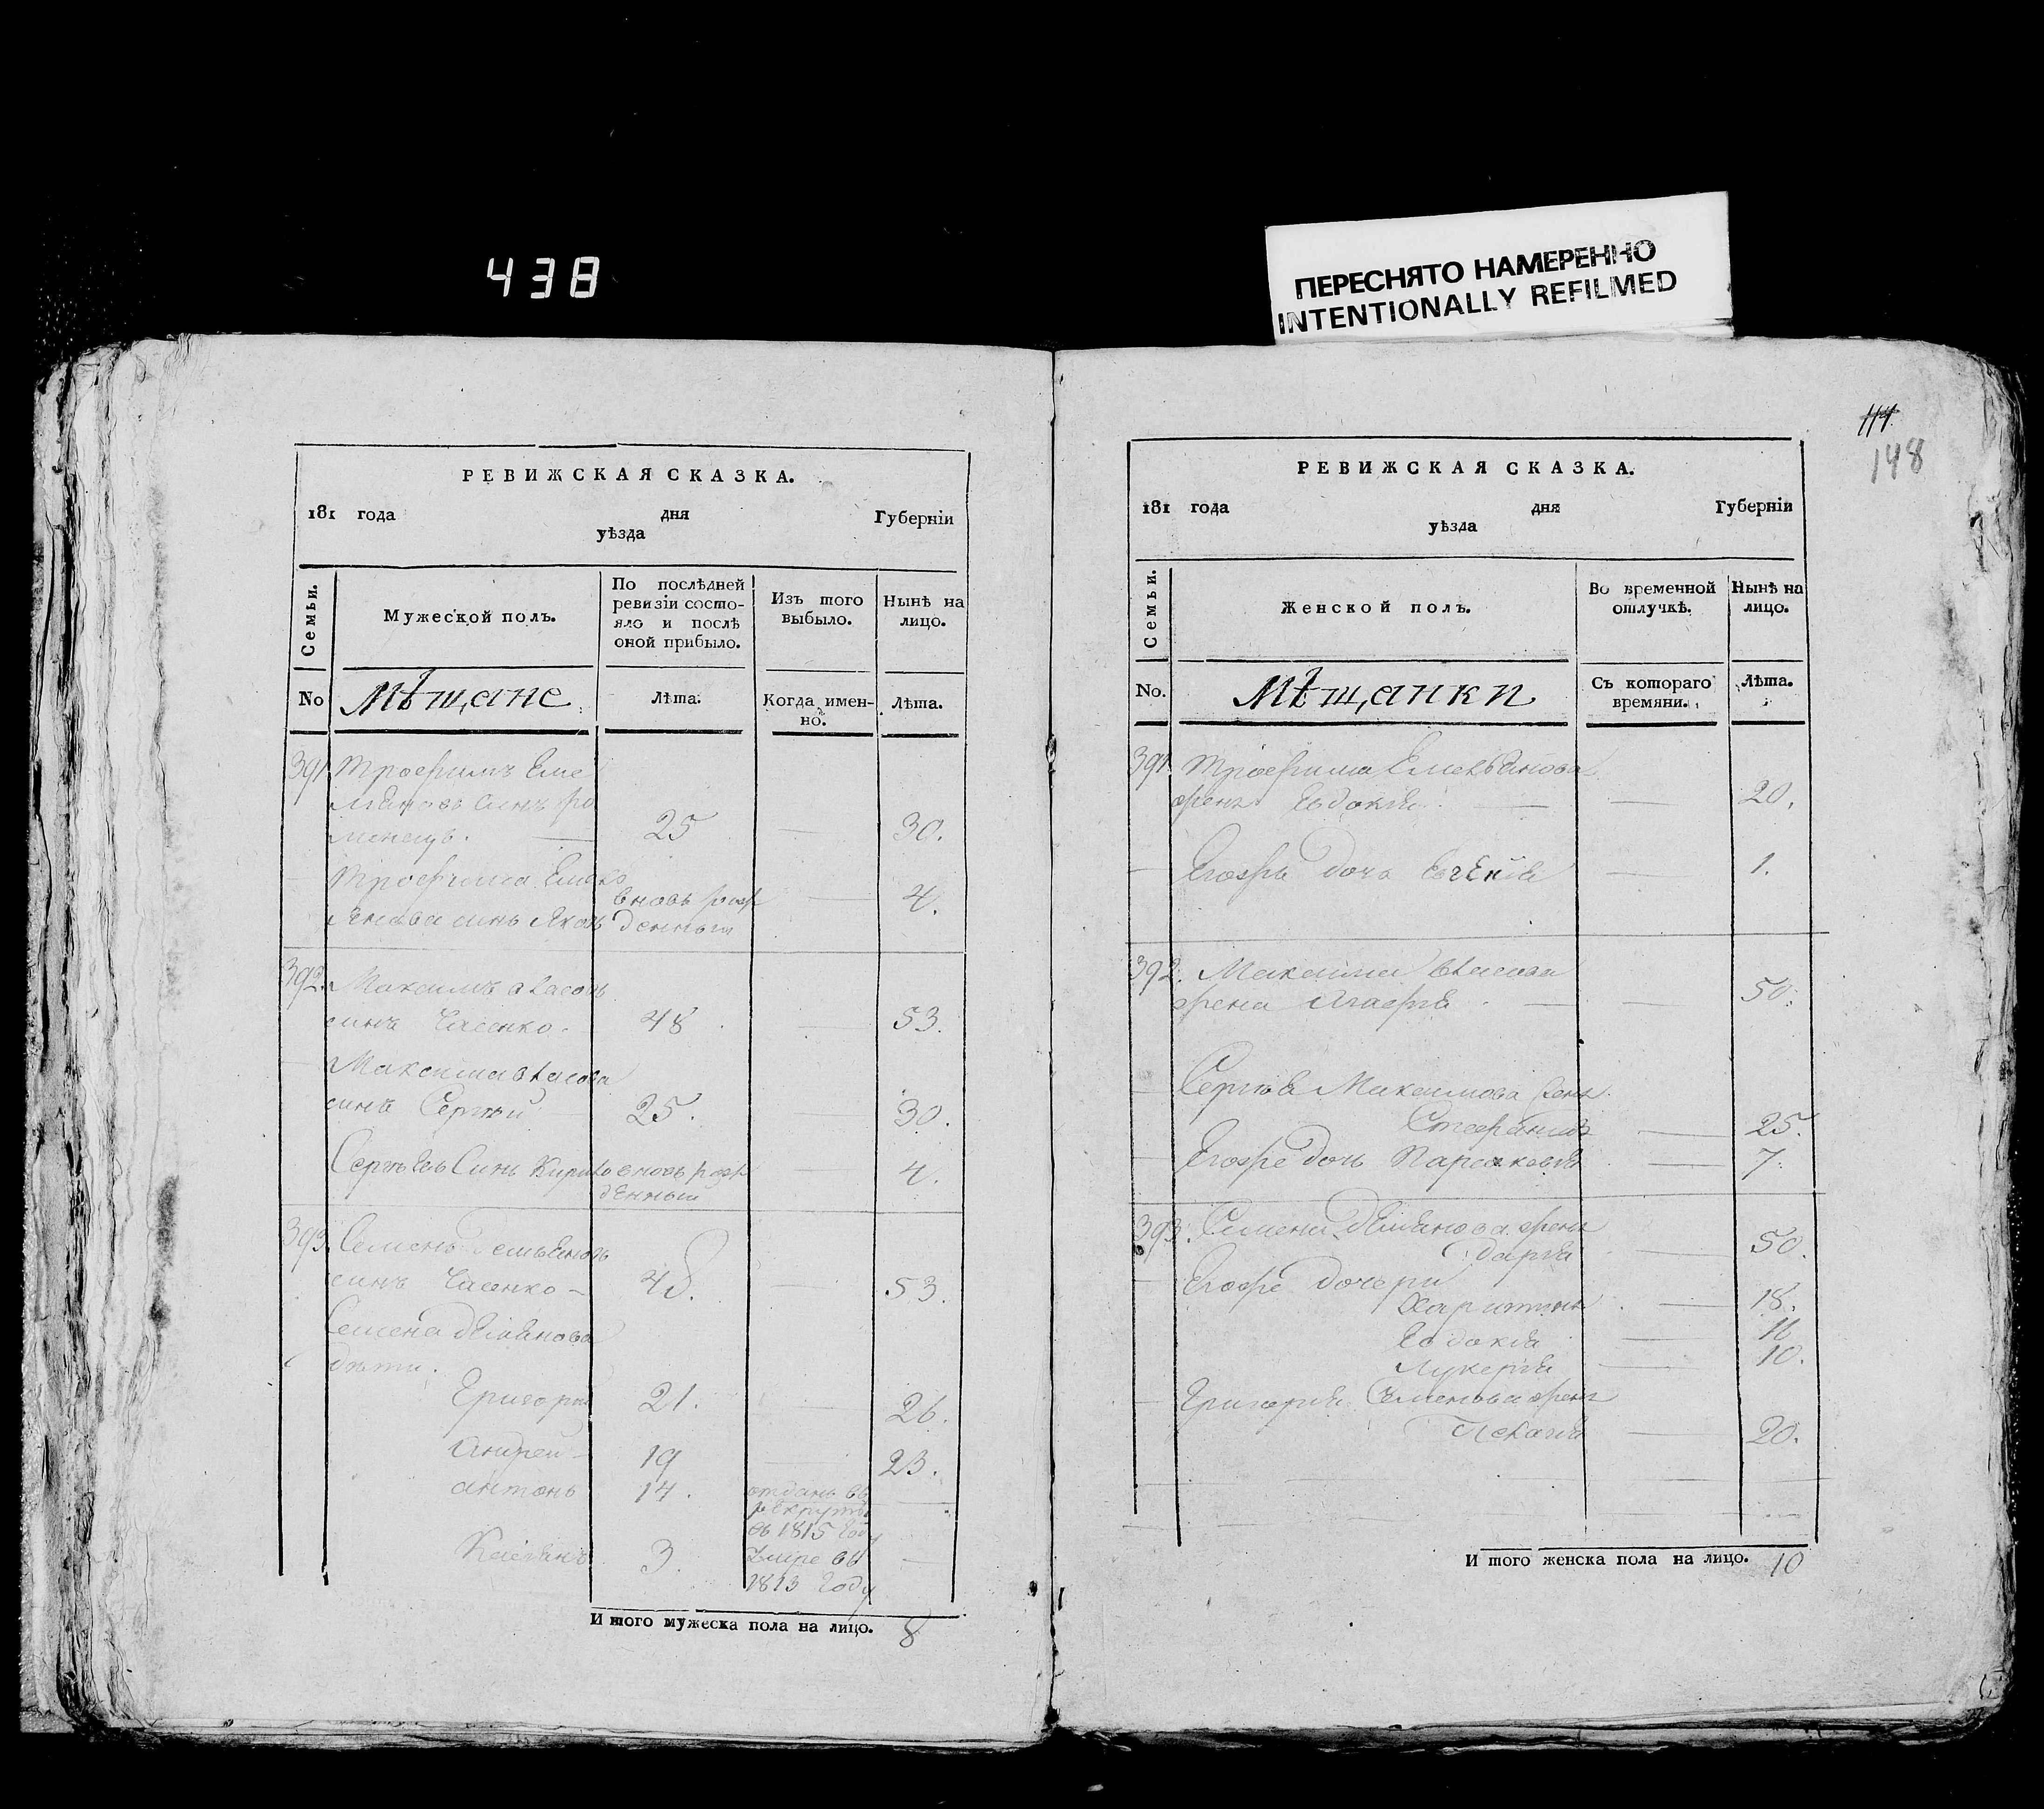 438
ПЕРЕСНЯТО НАМЕРЕННО
INTENTIONALLY REFILMED
РЕВИЖСКАЯ СКАЗКА.
181 года дня Губерніи
уѣзда
Семьи.
Мужеской полъ.
По послѣдней
ревизіи состо-
яло и послѣ
оной прибыло.
Изъ того
выбыло.
Нынѣ на
лицо.
No
Мѣщане
Лѣта.
Когда имен-
но.
Лѣта.
391 Трофимъ Еме
ляновъ синъ
25 30.
Трофима Емел
янова синъ Яковъ
вновь рож
денный
4.
392. Максимъ власовъ
синъ Часенко. 48 53.
Максима власова
синъ Сергѣй 25. 30.
Сергѣевъ Синъ Кирило вновь рож
денный
4.
393. Семенъ Демьяновъ
синъ Часенко - 48. 53.
Семена демянова
дѣти.
Григорій 21. 26.
Андрей - 19 23.
антонъ 14. отданъ въ
рекруты
въ 1815 году
Касянъ 3. умре въ
1813 году
И того мужеска пола на лицо. 8
114
148
РЕВИЖСКАЯ СКАЗКА.
181 года дня Губерніи
уѣзда
Семьи.
Женской полъ.
Во временной
отлучкѣ.
Нынѣ на
лицо.
No.
Мѣщанки
Съ котораго
времяни.
Лѣта.
391. Трофима Емельянова
жена Евдокія 20.
Егожъ дочь Евгенія 1.
392. Максима власова
жена Агафія 50.
Сергѣя Максимова жена
Стефанида 25.
Егоже дочь Парасковія 7.
393. Семена демянова жена
дарія 50.
Егоже дочери
Харитина 18.
Евдокія 11
Лукерія 10.
Григорія Семенова жена
Пелагія 20.
И того женска пола на лицо. 10